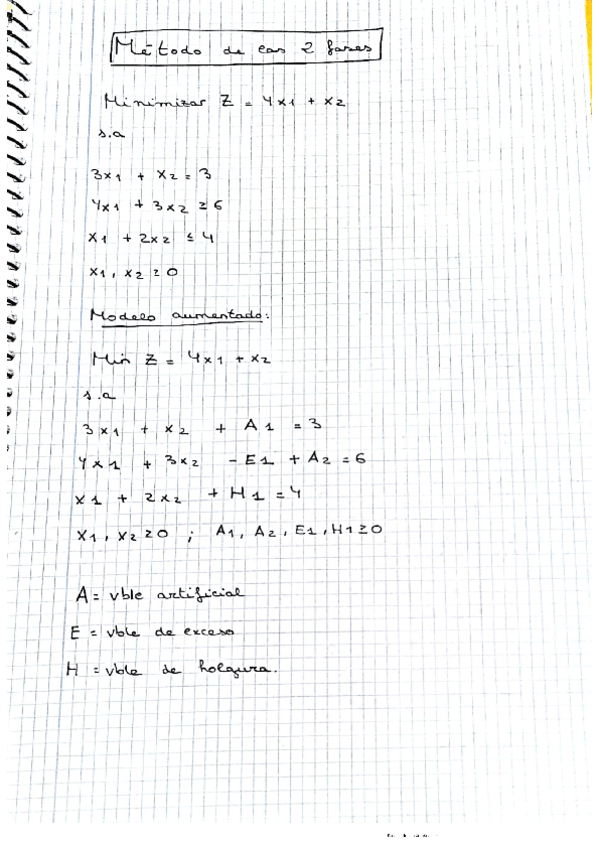 Método de las 2 fases
Minimizar Z = 4x1 + x2
s.a
3x1 + x2 = 3
4x1 + 3x2 ≥ 6
x1 + 2x2 ≤ 4
x1, x2 ≥ 0
Modelo aumentado:
Min Z = 4x1 + x2
s.a
3x1 + x2 + A1 = 3
4x1 + 3x2 - E1 + A2 = 6
x1 + 2x2 + H1 = 4
x1, x2 ≥ 0 ; A1, A2, E1, H1 ≥ 0
A = vble artificial
E = vble de exceso
H = vble de holgura.